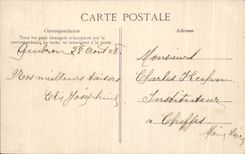 CARTE POSTALE
Correspondance
Tous les pays étrangers n'acceptent pas la
correspondance au recto, se renseigner à la Poste
Adresse
28 Août 08
Mes meilleurs baisers
Joséphine
Monsieur
Charles
Instituteur
à Cheffes
Maine